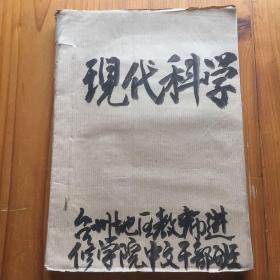 現代科学
台州地区教師進
修学院中文干部班